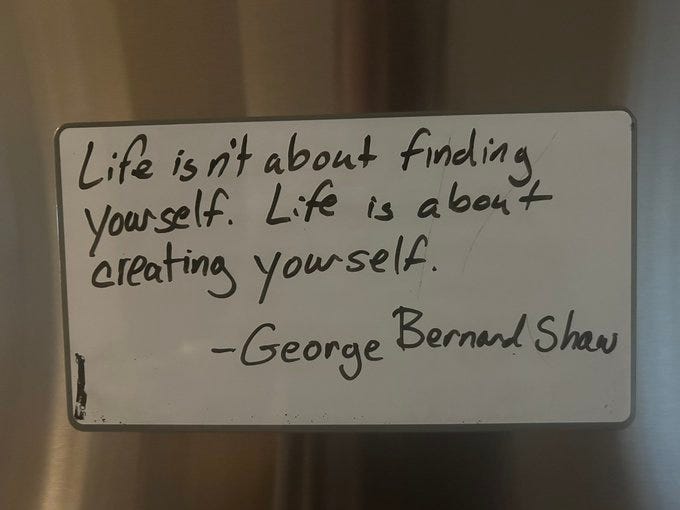 Life isn't about finding
yourself. Life is about
creating yourself.
-George Bernard Shaw